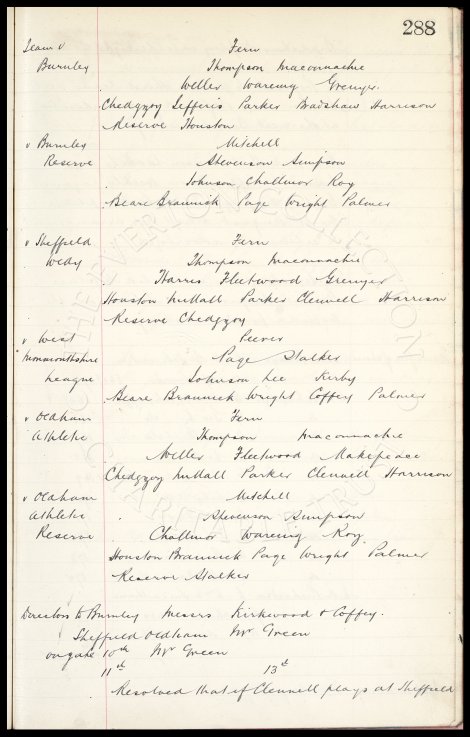 288
Team v Fern
Burnley Thompson Maconnachie
Weller Wareing Grenyer.
Chedgzoy Jefferis Parker Bradshaw Harrison
Reserve Houston
v Burnley Mitchell
Reserve Stevenson Simpson
Johnson Challinor Roy
Beare Brannick Page Wright Palmer
v Sheffield Fern
Wedy Thompson Maconnachie
Harris Fleetwood Grenyer
Houston Nuttall Parker Clennell Harrison
Reserve Chedgzoy
v West Peever
Monmouthshire Page Stalker
League Johnson Lee Kirby
Beare Brannick Wright Coffey Palmer
v Oldham Fern
Athletic Thompson Maconnachie
Weller Fleetwood Makepeace
Chedgzoy Nuttall Parker Clennell Harrison
v Oldham Mitchell
Athletic Stevenson Simpson
Reserve Challinor Wareing Roy.
Houston Brannick Page Wright Palmer
Reserve Stalker
Directors to Burnley Messrs Kirkwood & Coffey.
Sheffield Oldham Mr Green
on gate 10th Mr Green
11th 13th
Resolved that if Clennell plays at Sheffield
THE EVERTON COLLECTION
CHARITABLE TRUST